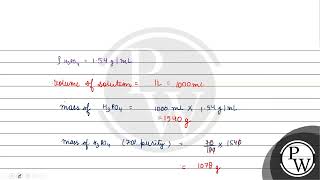 ρ H₃PO₄ = 1.54 g/mL
Volume of solution = 1L = 1000 mL
mass of H₃PO₄ = 1000 mL × 1.54 g/mL
= 1540 g
mass of H₃PO₄ (70% purity) = 70/100 × 1540
= 1078 g
PW